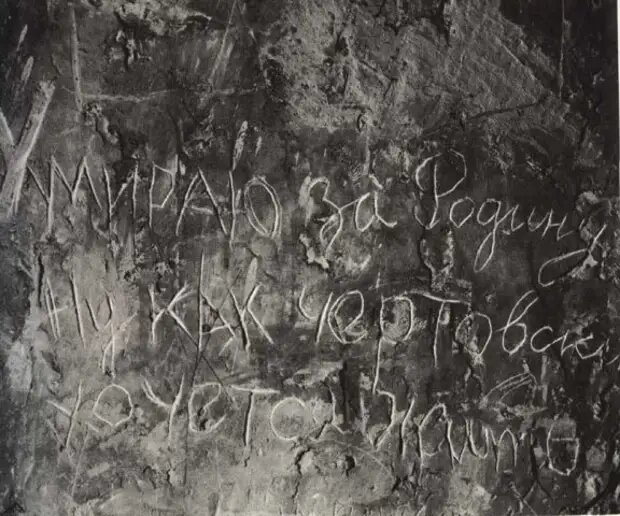 УМИРАЮ за Родину
Ну КАК чертовски
хочется жить